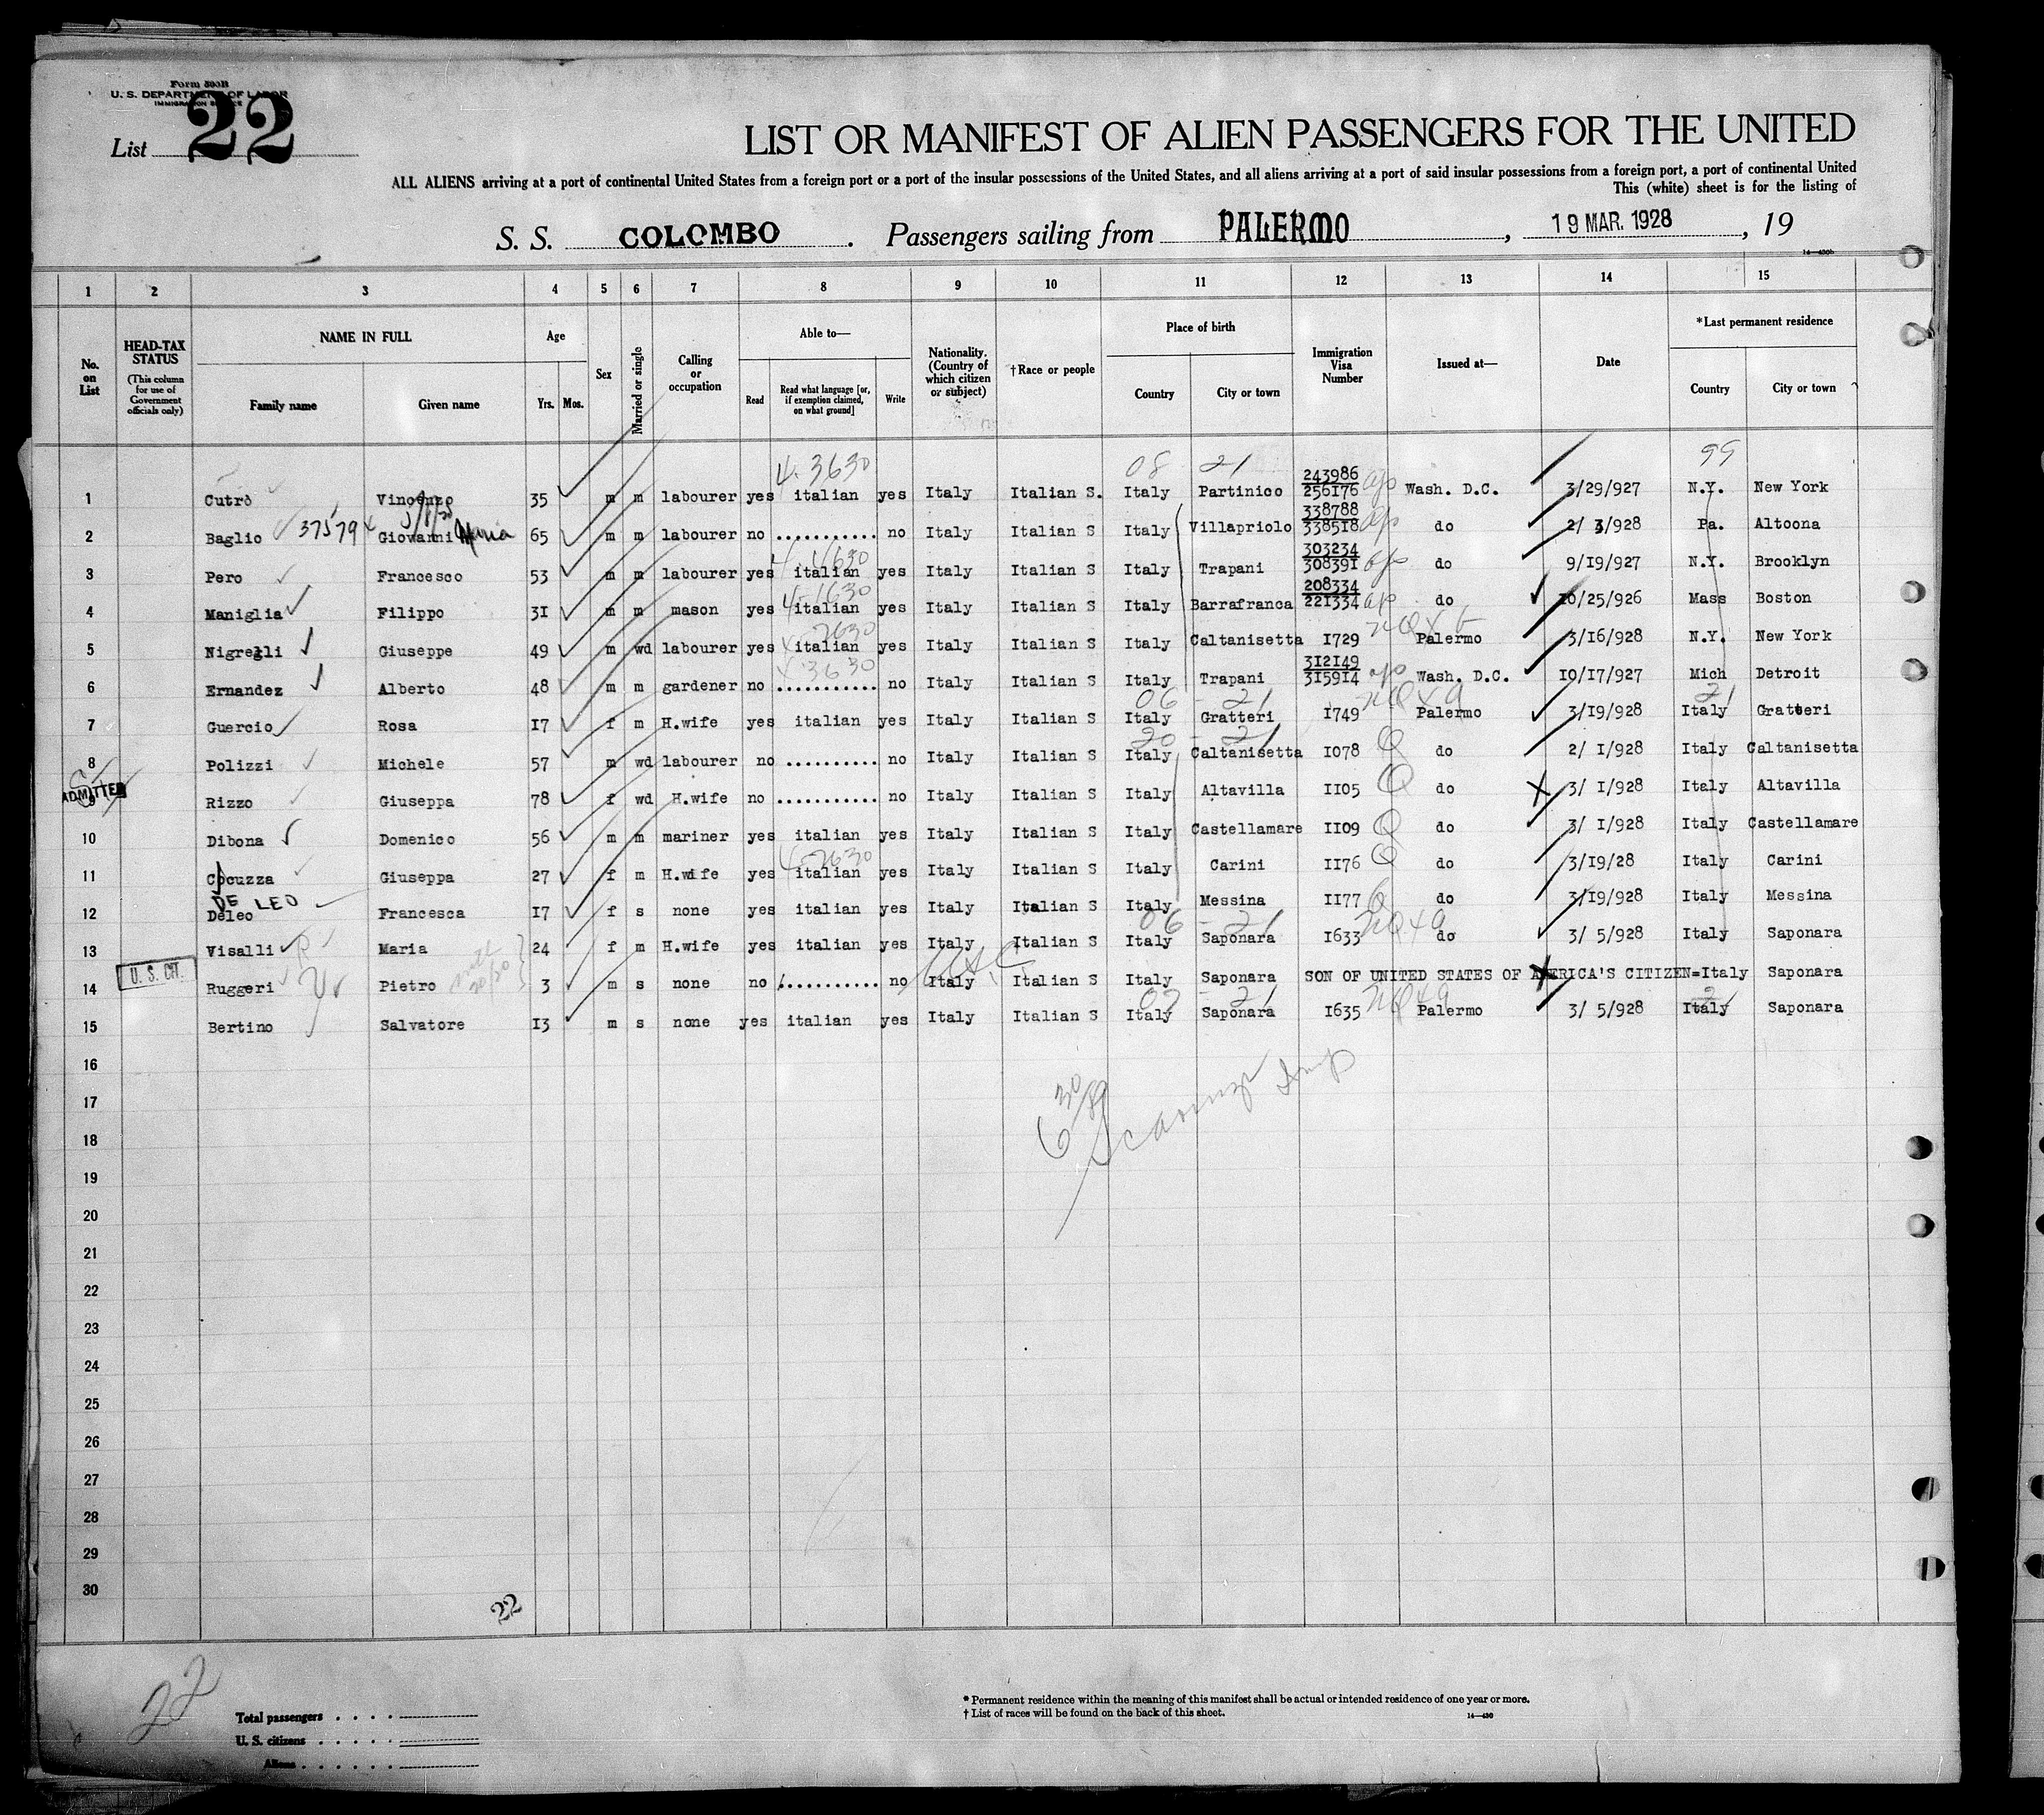 Form 500B
U. S. DEPARTMENT OF LABOR
IMMIGRATION SERVICE
List 22
LIST OR MANIFEST OF ALIEN PASSENGERS FOR THE UNITED
ALL ALIENS arriving at a port of continental United States from a foreign port or a port of the insular possessions of the United States, and all aliens arriving at a port of said insular possessions from a foreign port, a port of continental United
This (white) sheet is for the listing of
S. S. COLOMBO . Passengers sailing from PALERMO , 19 MAR. 1928 , 19
1 2 3 4 5 6 7 8 9 10 11 12 13 14 15
No. on List
HEAD-TAX STATUS
(This column for use of Government officials only)
NAME IN FULL
Family name Given name
Age
Yrs. Mos.
Sex
Married or single
Calling or occupation
Able to—
Read
Read what language [or, if exemption claimed, on what ground]
Write
Nationality. (Country of which citizen or subject)
†Race or people
Place of birth
Country City or town
Immigration Visa Number
Issued at—
Date
*Last permanent residence
Country City or town
4-3630 08 21 99
1 Cutrò Vincenzo 35 m m labourer yes italian yes Italy Italian S. Italy Partinico 243986 256176 Wash. D.C. 3/29/927 N.Y. New York
2 Baglio 37579 Giovanni Maria 65 m m labourer no ........... no Italy Italian S Italy Villapriolo 338788 338518 do 2/ 3/928 Pa. Altoona
3 Pero Francesco 53 m m labourer yes italian yes Italy Italian S Italy Trapani 303234 308391 do 9/19/927 N.Y. Brooklyn
4 Maniglia Filippo 31 m m mason yes italian yes Italy Italian S Italy Barrafranca 208334 221334 do 10/25/926 Mass Boston
5 Nigrelli Giuseppe 49 m wd labourer yes italian yes Italy Italian S Italy Caltanisetta 1729 Palermo 3/16/928 N.Y. New York
6 Ernandez Alberto 48 m m gardener no ........... no Italy Italian S Italy Trapani 312149 315914 Wash. D.C. 10/17/927 Mich Detroit
06 - 21 21
7 Guercio Rosa 17 f m H.wife yes italian yes Italy Italian S Italy Gratteri 1749 Palermo 3/19/928 Italy Gratteri
20 - 21
8 Polizzi Michele 57 m wd labourer no .......... no Italy Italian S Italy Caltanisetta 1078 do 2/ 1/928 Italy Caltanisetta
ADMITTED
9 Rizzo Giuseppa 78 f wd H.wife no ........... no Italy Italian S Italy Altavilla 1105 do 3/ 1/928 Italy Altavilla
10 Dibona Domenico 56 m m mariner yes italian yes Italy Italian S Italy Castellamare 1109 do 3/ 1/928 Italy Castellamare
4-2630
11 Cocuzza Giuseppa 27 f m H.wife yes italian yes Italy Italian S Italy Carini 1176 do 3/19/28 Italy Carini
DE LEO
12 Deleo Francesca 17 f s none yes italian yes Italy Italian S Italy Messina 1177 do 3/19/928 Italy Messina
06 - 21
13 Visalli Maria 24 f m H.wife yes italian yes Italy Italian S Italy Saponara 1633 do 3/ 5/928 Italy Saponara
U. S. CIT.
14 Ruggeri Pietro 3 m s none no ........... no Italy Italian S Italy Saponara SON OF UNITED STATES OF AMERICA'S CITIZEN=Italy Saponara
15 Bertino Salvatore 13 m s none yes italian yes Italy Italian S Italy Saponara 1635 Palermo 3/ 5/928 Italy Saponara
16
17
18
19
20
21
22
23
24
25
26
27
28
29
30
22
22
Total passengers . . . .
U. S. citizens . . . . .
Aliens . . . . . .
* Permanent residence within the meaning of this manifest shall be actual or intended residence of one year or more.
† List of races will be found on the back of this sheet.
14—430